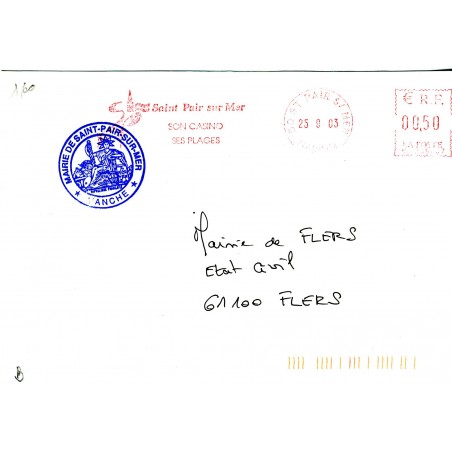 1,60
Saint Pair sur Mer
SON CASINO
SES PLAGES
SAINT PAIR S/ MER
25 0 03
€ R.F.
00,50
LA POSTE
MAIRIE DE SAINT-PAIR-SUR-MER
★ MANCHE ★
Mairie de FLERS
Etat Civil
61100 FLERS
B